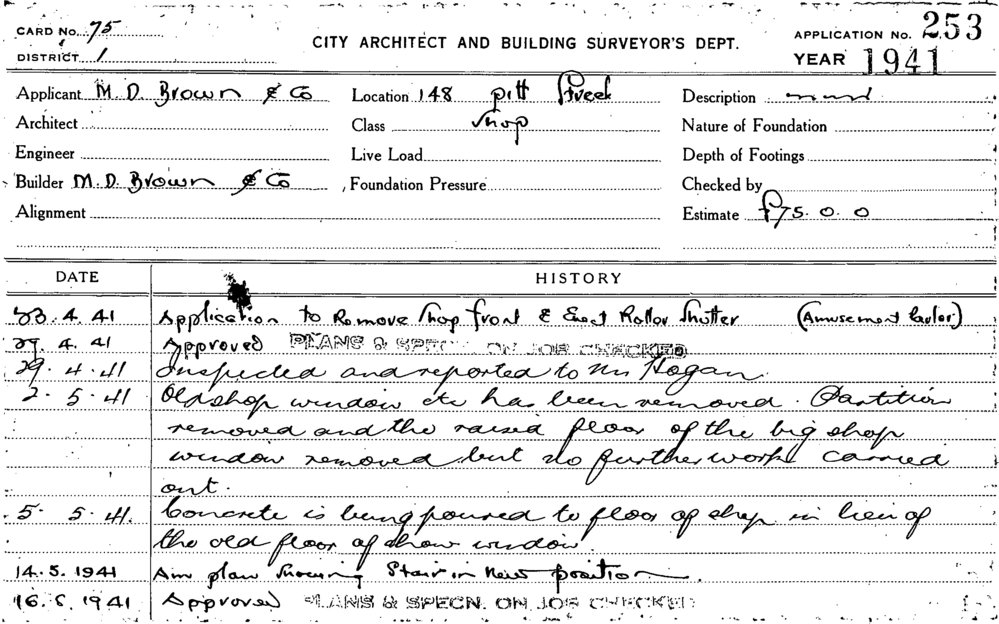 CARD No. 75
DISTRICT 1
CITY ARCHITECT AND BUILDING SURVEYOR'S DEPT.
APPLICATION No. 253
YEAR 1941
Applicant M. D. Brown & Co Location 148 pitt Street Description
Architect Class Shop Nature of Foundation
Engineer Live Load Depth of Footings
Builder M. D. Brown & Co Foundation Pressure Checked by
Alignment Estimate £75. 0. 0
DATE HISTORY
23. 4. 41 Application to Remove Shop front & Erect Roller Shutter (Amusement Parlor)
29. 4. 41 Approved PLANS & SPECN. ON JOB CHECKED
29. 4. 41 Inspected and reported to Mr Hogan.
2. 5. 41 Old shop window etc has been removed. Partition
removed and the raised floor of the big shop
window removed but no further work carried
out.
5. 5. 41. Concrete is being poured to floor of shop in lieu of
the old floor of show window.
14. 5. 1941 Am plan showing Stair in New position.
16. 5. 1941 Approved PLANS & SPECN. ON JOB CHECKED